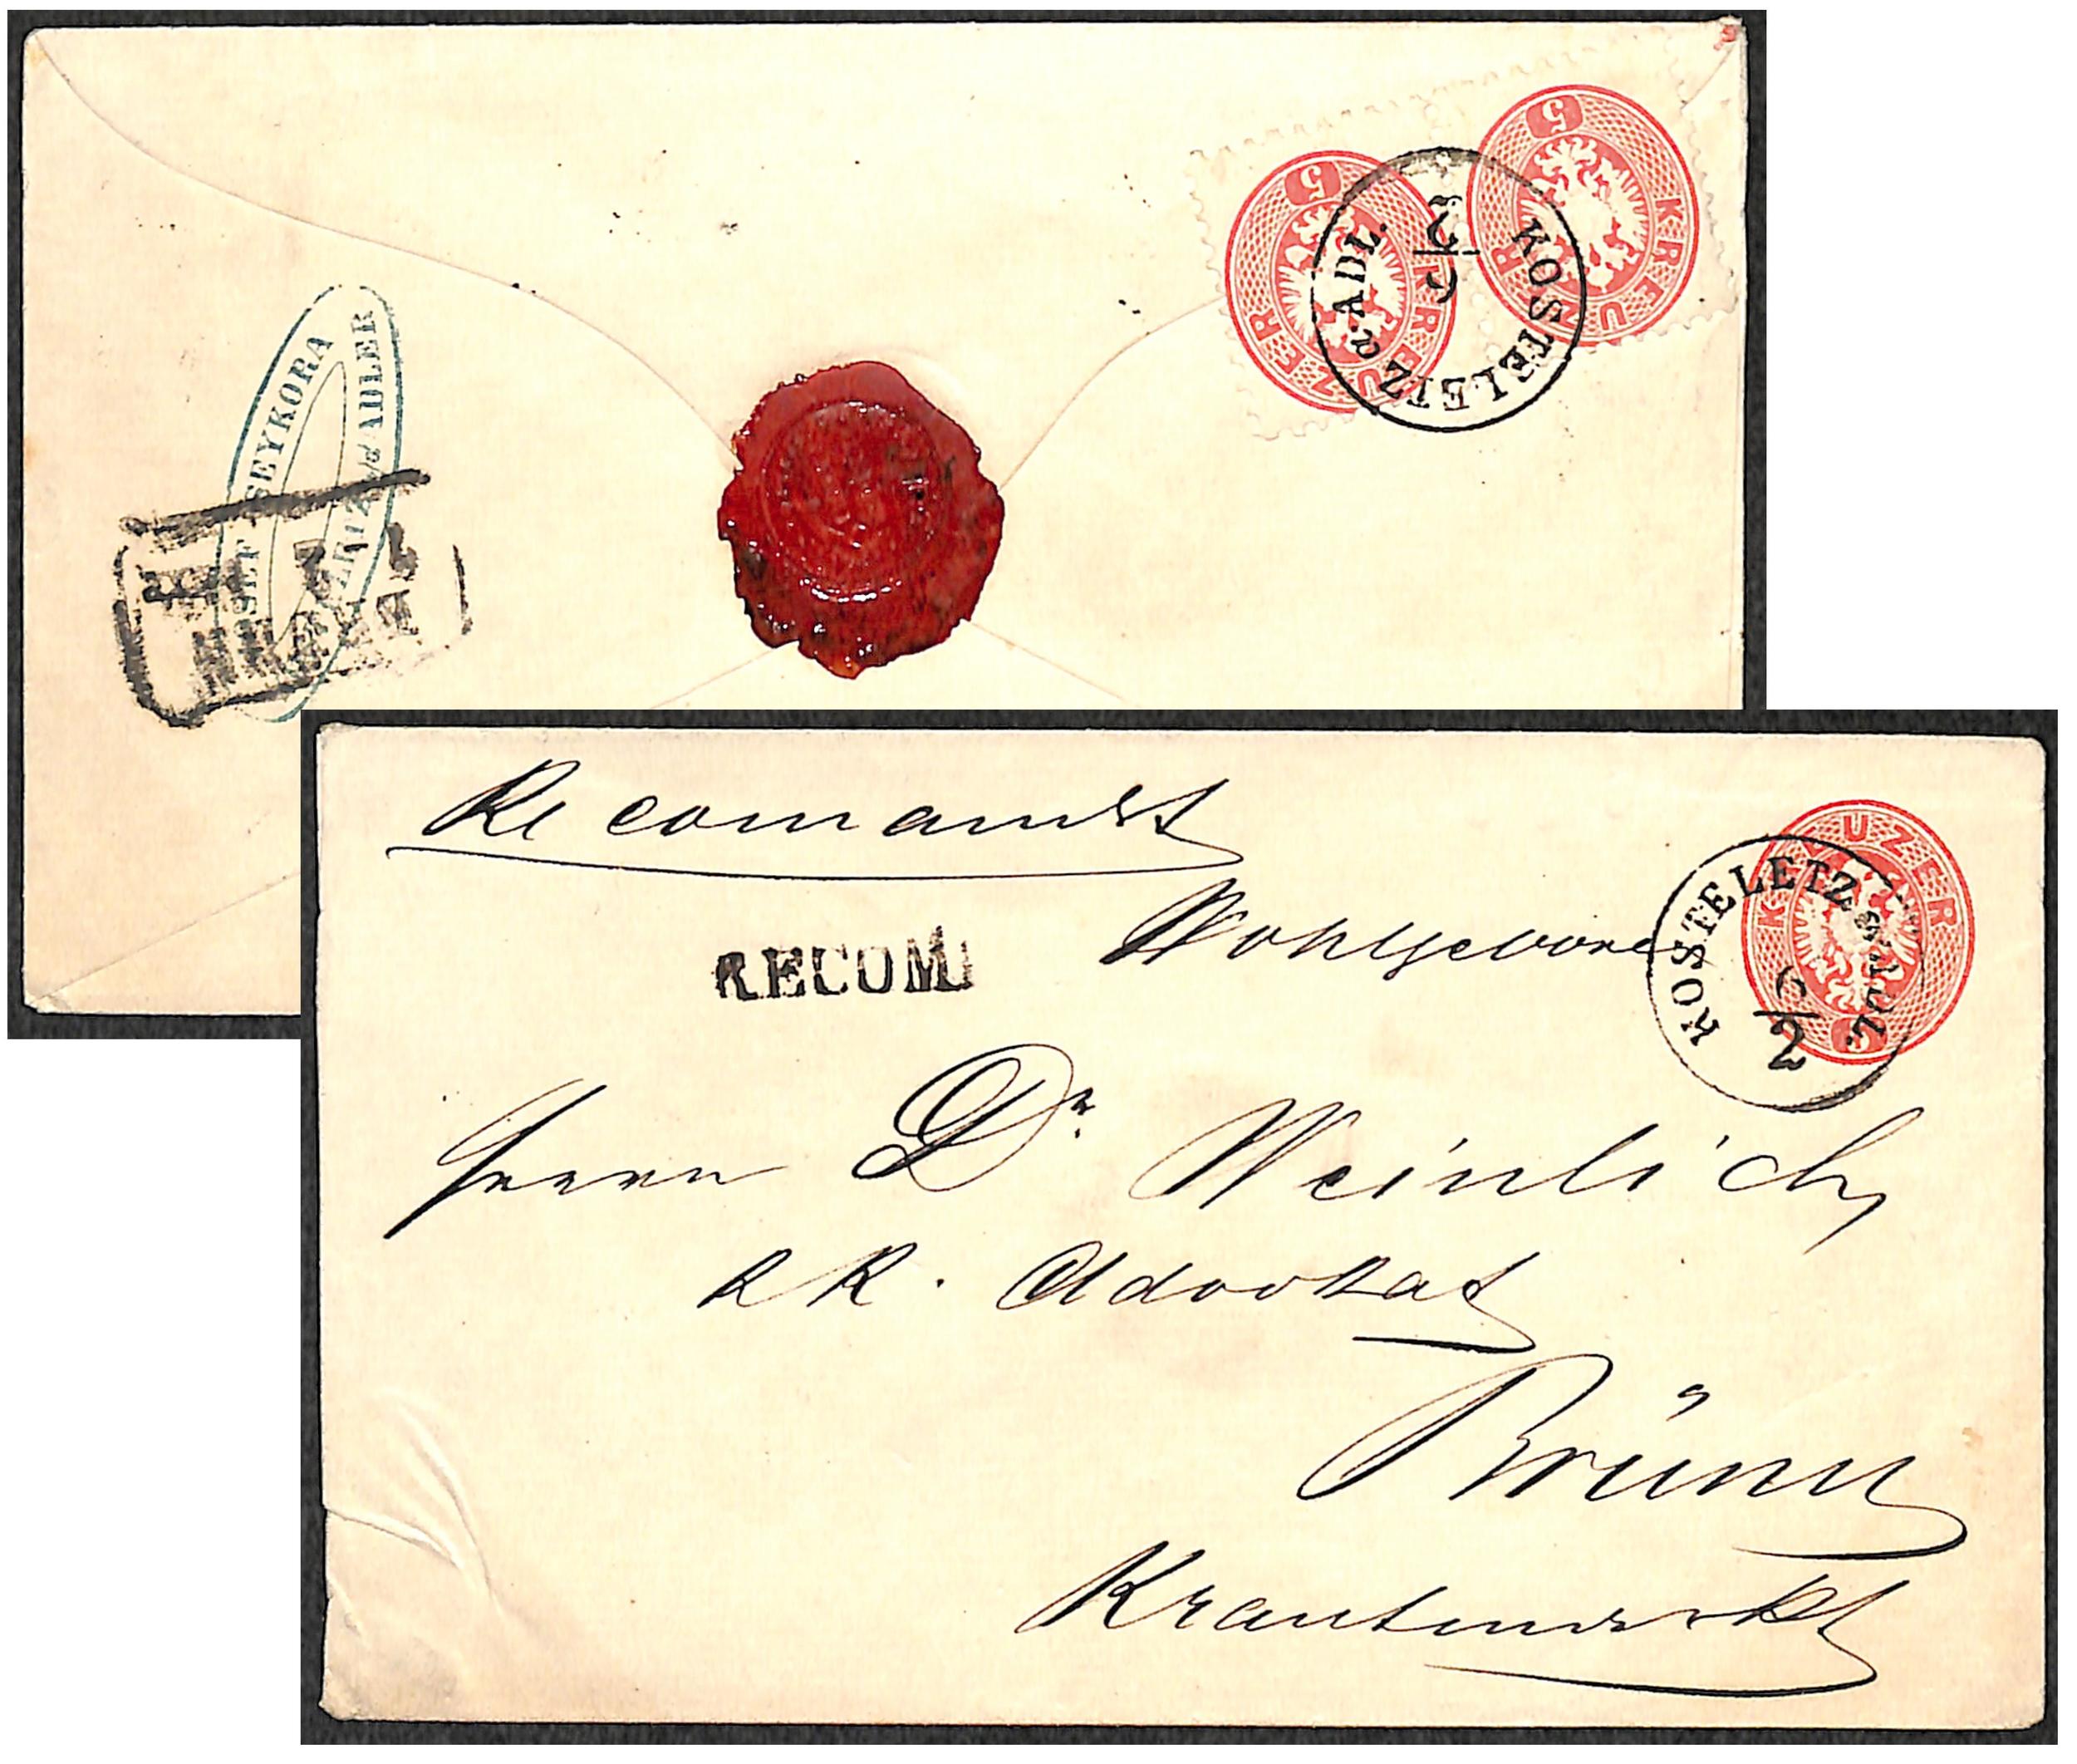 5 KREUZER
5 KREUZER
KOSTELETZ a. ADL.
SEYKORA
ADLER
Recomandt
RECOM.
KREUZER 5
KOSTELETZ a. ADL.
Wohlgeboren
Herrn Dr Weinlich
k k. Advokat
Brünn
Krautmarkt